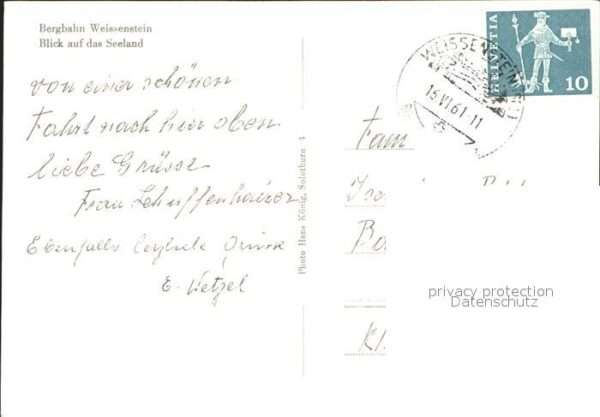 Bergbahn Weissenstein
Blick auf das Seeland
von einer schönen
Fahrt nach hier oben
liebe Grüsse
Frau
Ebenfalls herzliche Grüsse
E. Wetzel
Photo Hans König, Solothurn
HELVETIA
10
WEISSENSTEIN
15.VI.61.11
Fam
privacy protection
Datenschutz